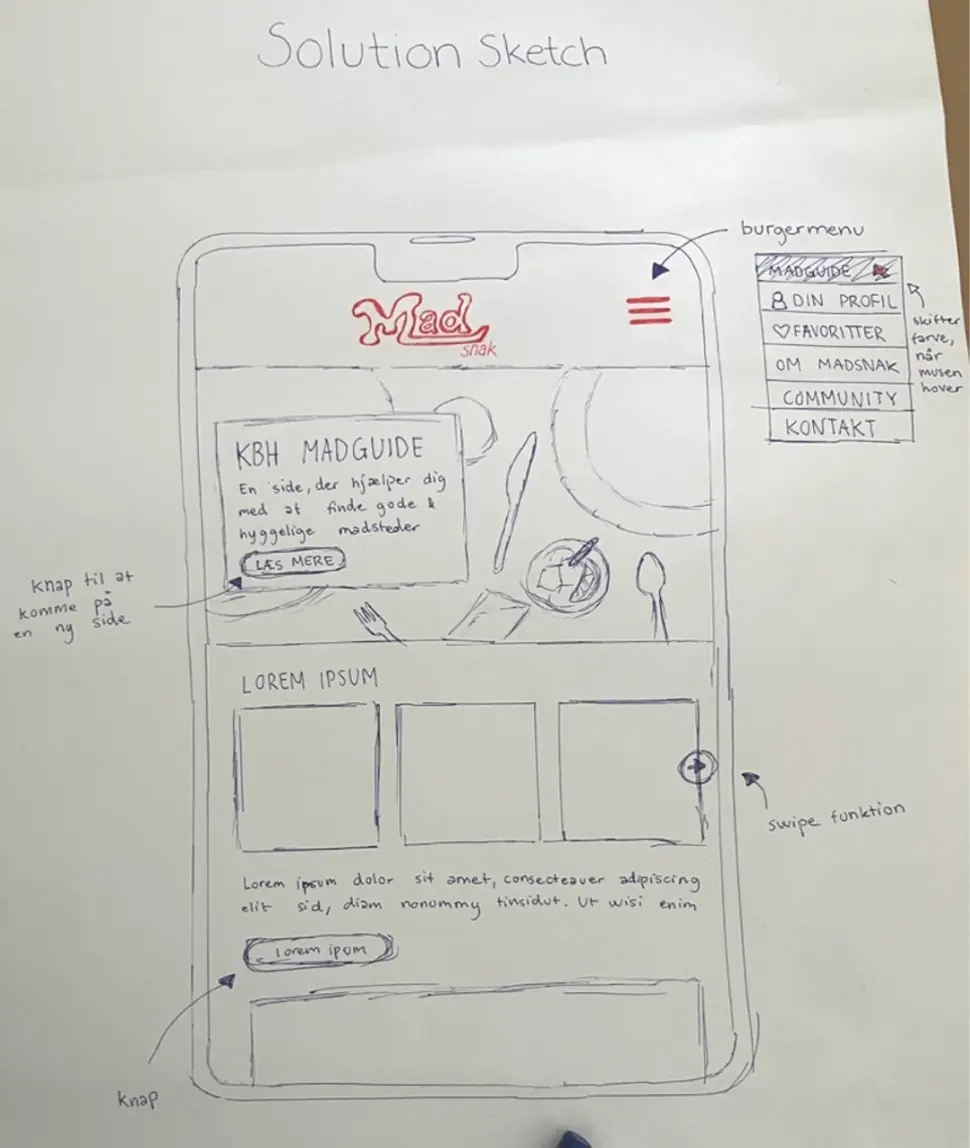 Solution Sketch
burgermenu
Mad
snak
MADGUIDE
DIN PROFIL
FAVORITTER
OM MADSNAK
COMMUNITY
KONTAKT
skifter
farve,
når
musen
hover
KBH MADGUIDE
En side, der hjælper dig
med at finde gode &
hyggelige madsteder
LÆS MERE
Knap til at
komme på
en ny side
LOREM IPSUM
swipe funktion
Lorem ipsum dolor sit amet, consecteaver adipiscing
elit sid, diam nonummy tinsidut. Ut wisi enim
Lorem ipum
knap